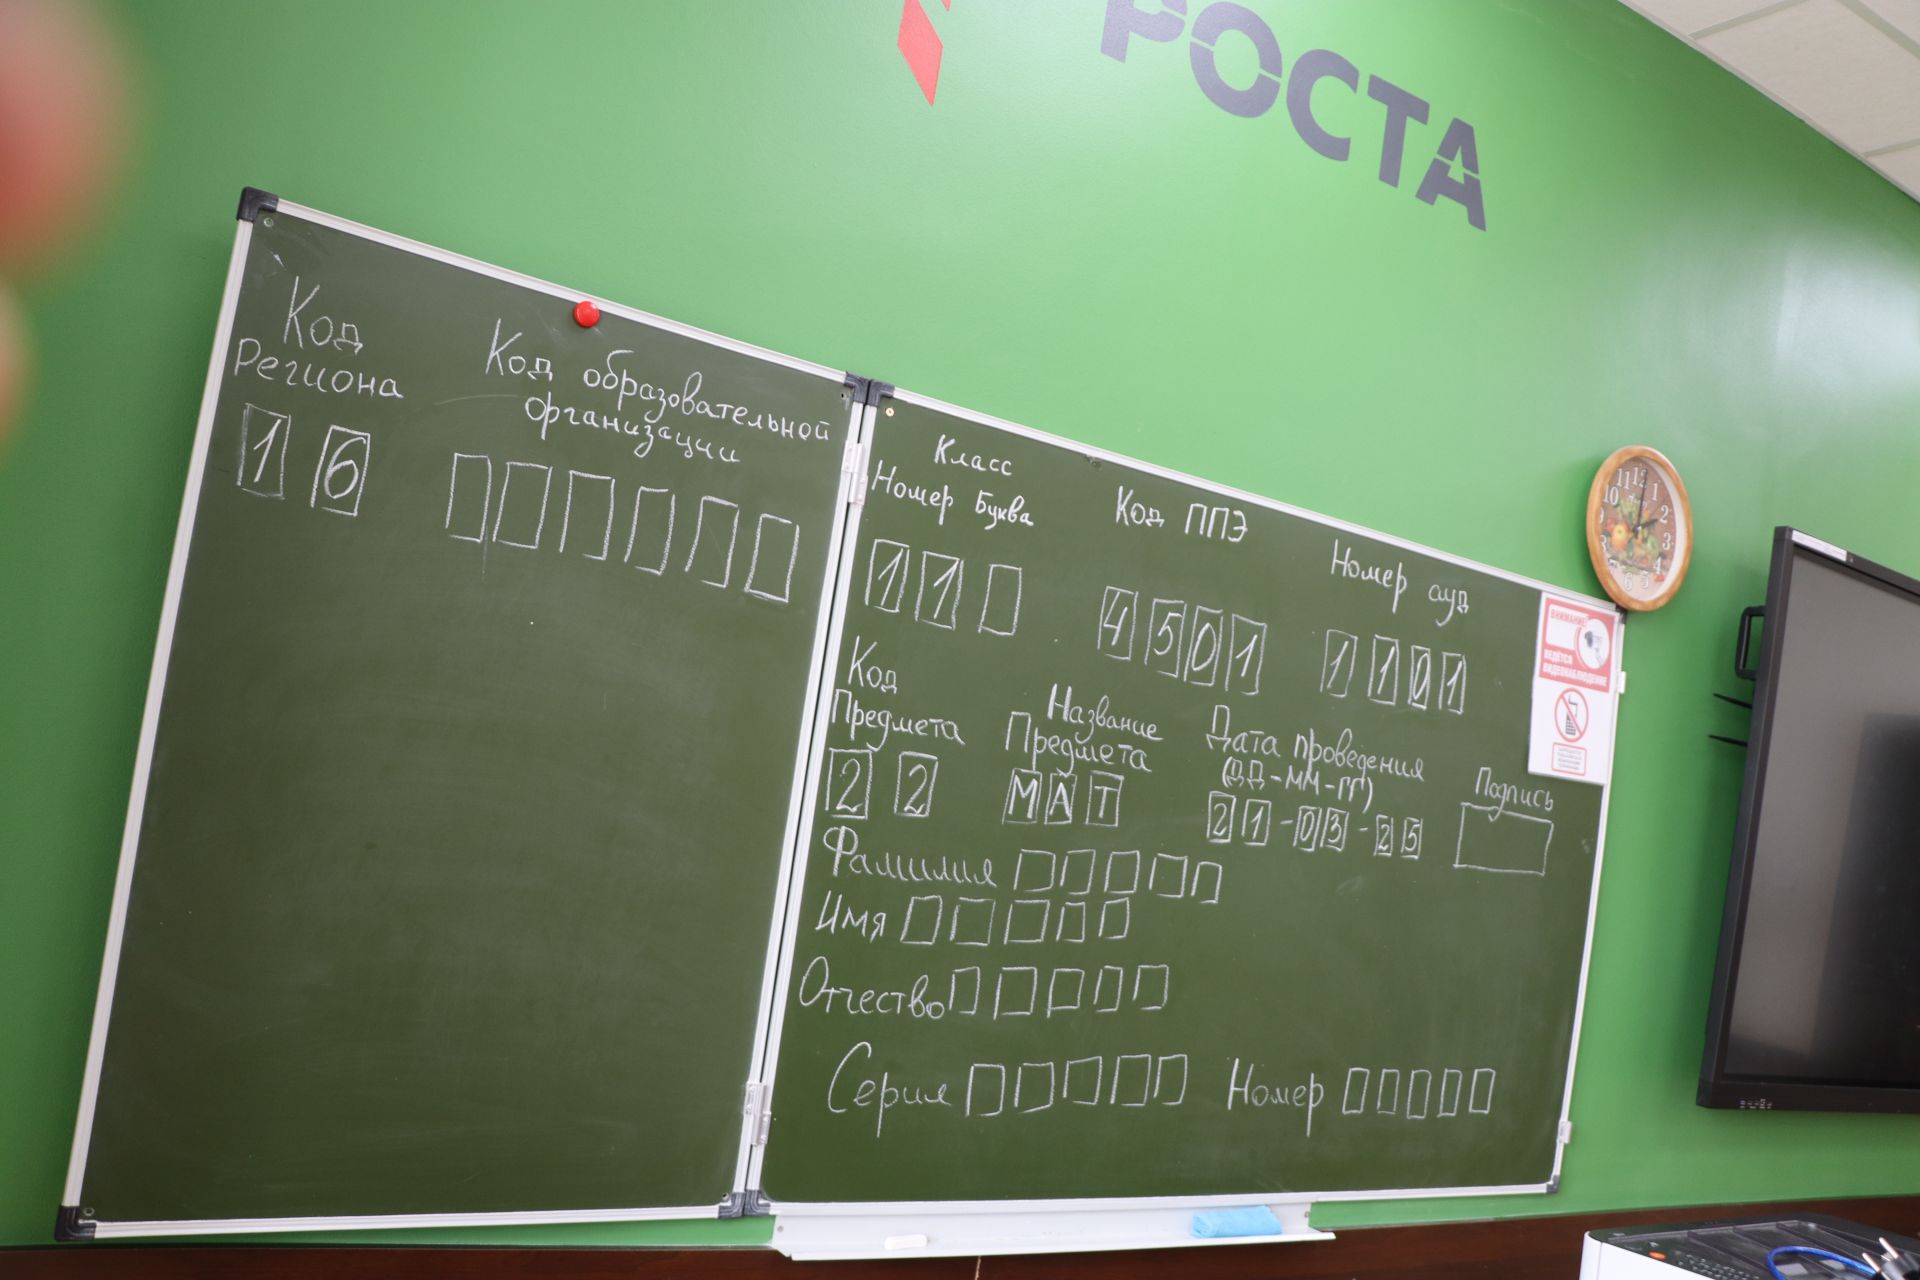 РОСТА
Код
региона
1 6
Код образовательной
организации
Класс
Номер Буква
1 1
Код ППЭ
4 5 0 1
Номер ауд
1 1 0 1
Код
Предмета
2 2
Название
Предмета
М А Т
Дата проведения
(ДД-ММ-ГГ)
2 1 - 0 3 - 2 5
Подпись
Фамилия
Имя
Отчество
Серия
Номер
ВНИМАНИЕ
ВЕДЁТСЯ
ВИДЕОНАБЛЮДЕНИЕ
11 12 1
10 2
3
8 4
6 5